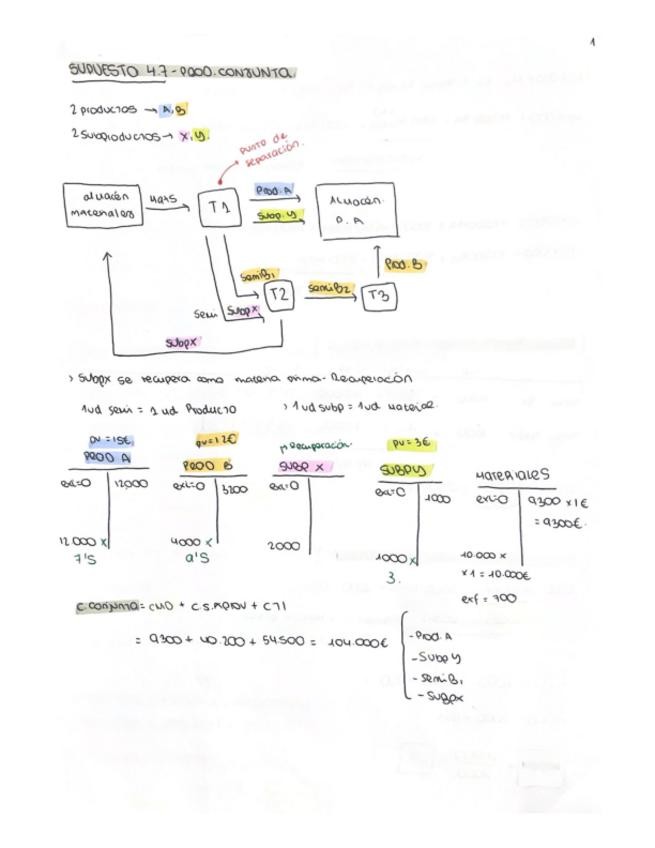 1
SUPUESTO 4.7 - PROD. CONJUNTA.
2 productos → A, B
2 subproductos → X, Y.
punto de separación.
almacén materiales
mats
T1
Prod. A
Subp. Y
Almacén P.A
Prod. B
semiB1
T2
semiB2
T3
semi Subpx
Subpx
> Subpx se recupera como materia prima - Recuperación
1ud semi = 1 ud Producto > 1 ud subp = 1ud material.
pv = 15€ pv = 12€ pRecuperación pv = 3€
PROD A PROD B SUBP X SUBP Y MATERIALES
exi=0 12,000 exi=0 3200 exi=0 exi=0 1000 exi=0 9300 x 1€
= 9300€.
12.000 x 4000 x 2000 1000 x 10.000 x
7'5 9'5 3. x 1 = 10.000€
exf = 700
C.conjunta = CMO + C.S.APROV + CT1
= 9300 + 40.200 + 54.500 = 104.000€
- Prod. A
- Subp Y
- semi B1
- Subpx